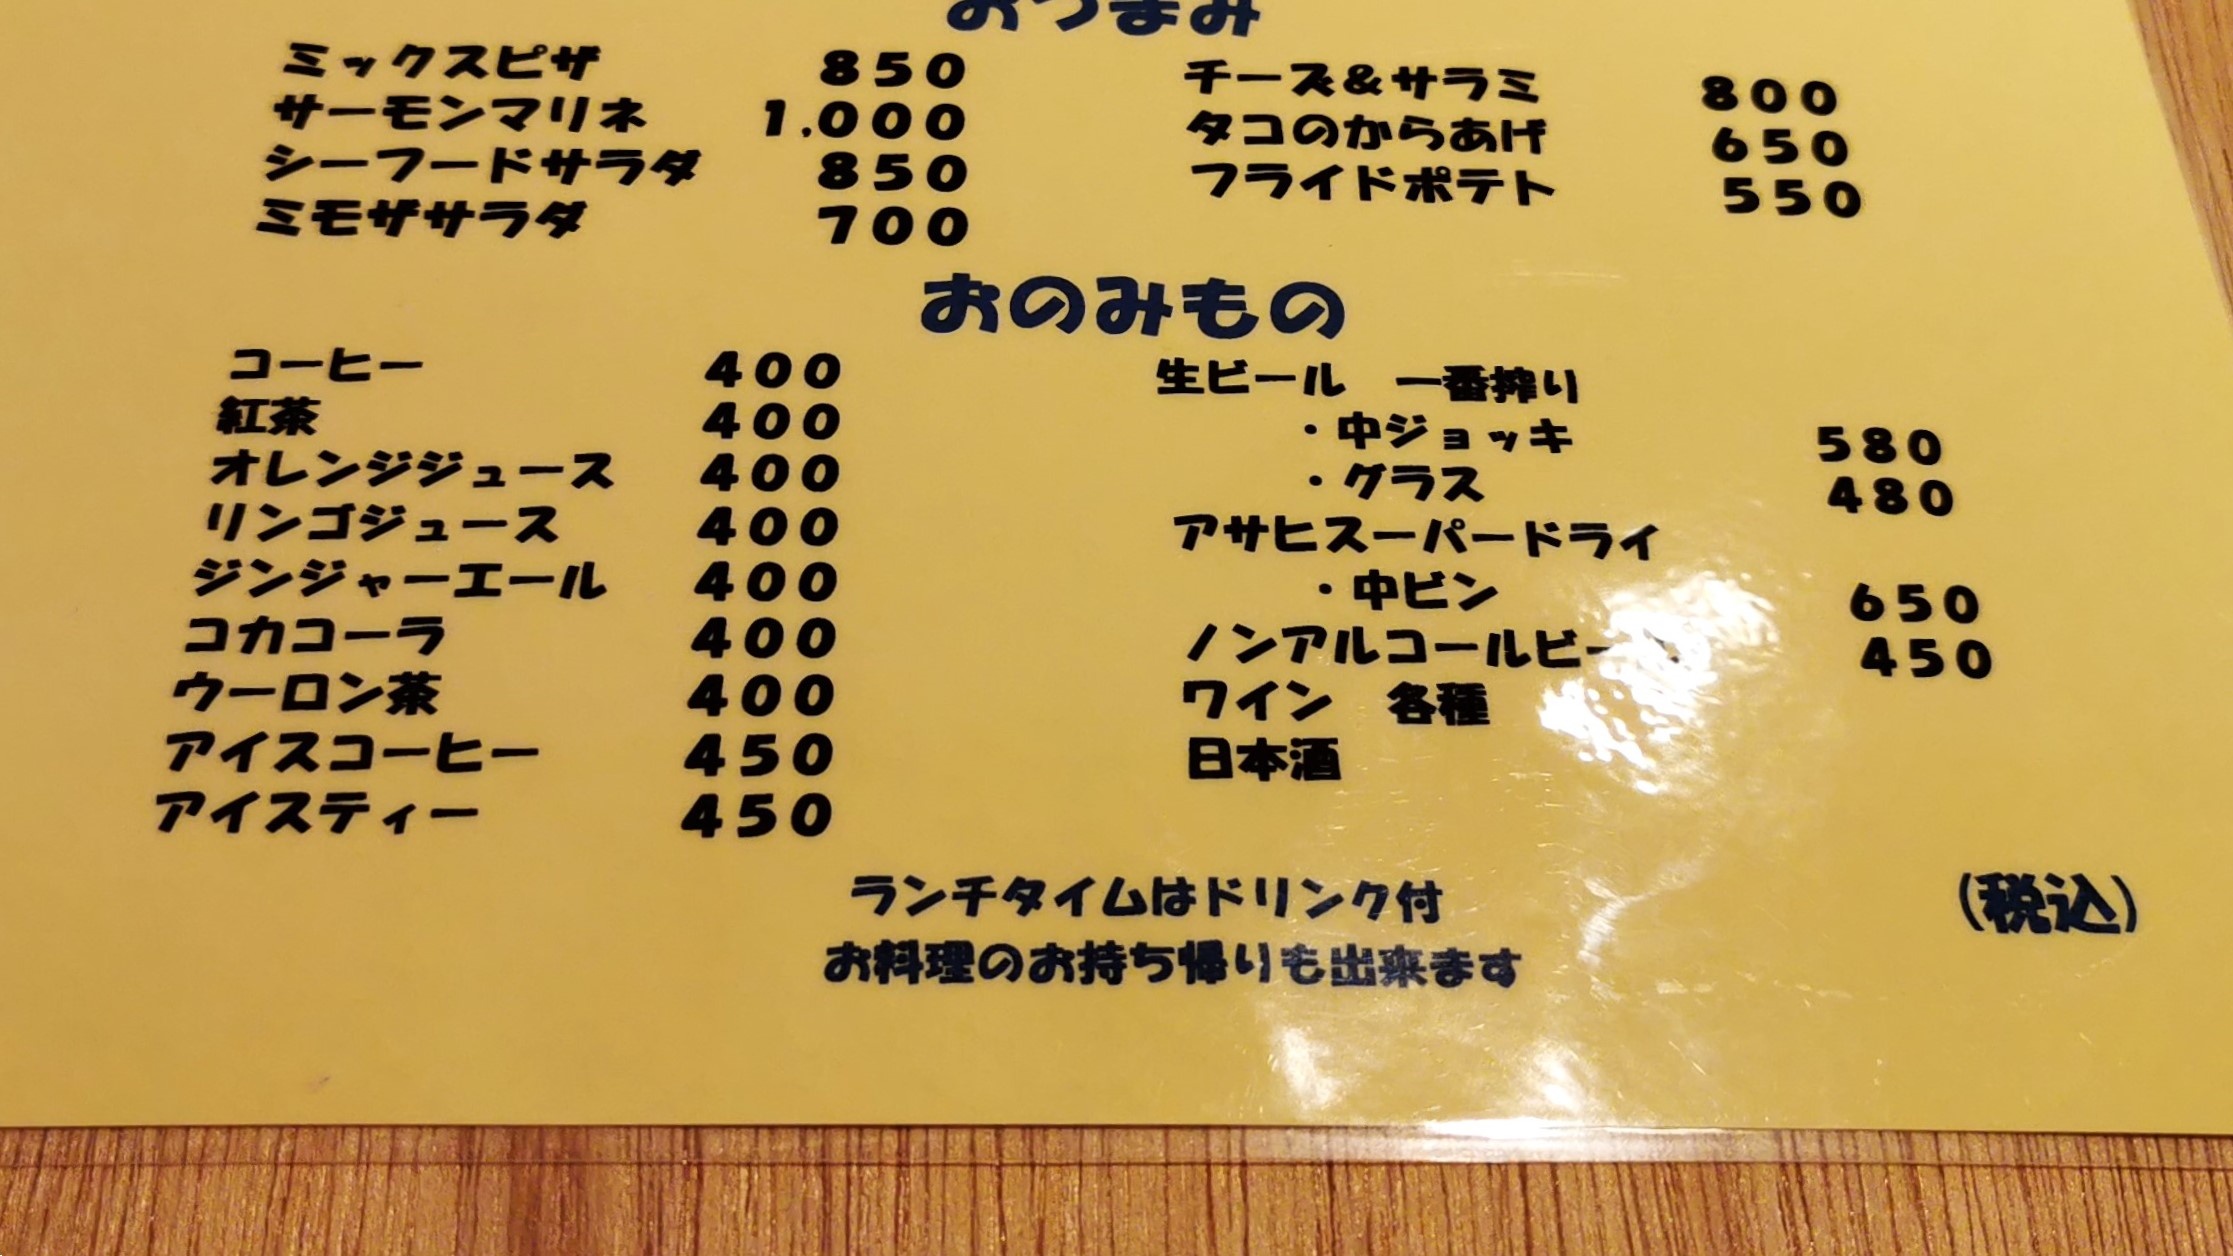 おつまみ
ミックスピザ 850
サーモンマリネ 1,000
シーフードサラダ 850
ミモザサラダ 700
チーズ&サラミ 800
タコのからあげ 650
フライドポテト 550
おのみもの
コーヒー 400
紅茶 400
オレンジジュース 400
リンゴジュース 400
ジンジャーエール 400
コカコーラ 400
ウーロン茶 400
アイスコーヒー 450
アイスティー 450
生ビール 一番搾り
・中ジョッキ 580
・グラス 480
アサヒスーパードライ
・中ビン 650
ノンアルコールビール 450
ワイン 各種
日本酒
ランチタイムはドリンク付
お料理のお持ち帰りも出来ます
(税込)